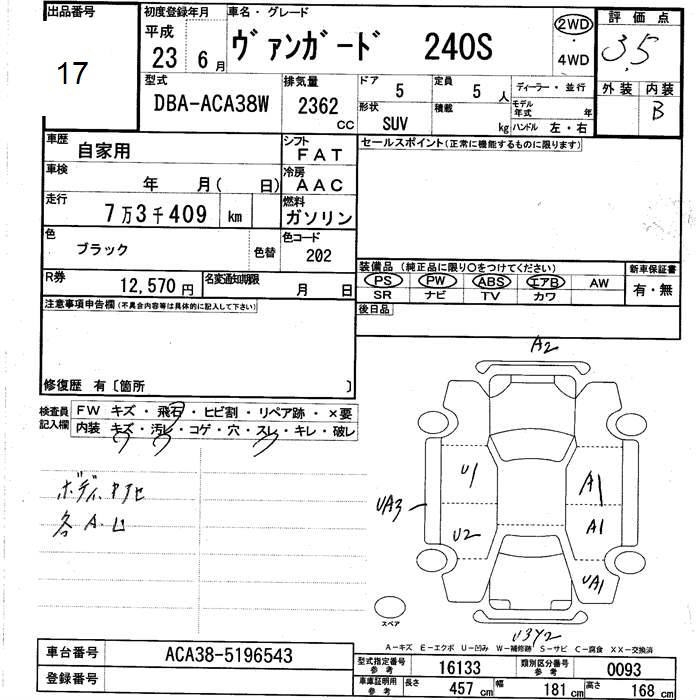 出品番号
17
初度登録年月
平成
23 6月
車名・グレード
ヴァンガード 240S
2WD
・
4WD
評価点
3.5
外装 内装
B
型式
DBA-ACA38W
排気量
2362
CC
ドア 5
定員 5 人
形状
SUV
積載
kg
ディーラー・並行
モデル年式 年
ハンドル 左・右
車歴
自家用
シフト
FAT
セールスポイント(正常に機能するものに限ります)
車検
年 月( 日)
冷房
AAC
走行
7万3千409 km
燃料
ガソリン
色
ブラック
色替
色コード
202
R券
12,570円
名変通知期限
月 日
装備品 (純正品に限り○をつけてください)
PS PW ABS エアB AW
SR ナビ TV カワ
新車保証書
有・無
後日品
注意事項申告欄(不具合内容等は具体的に記入して下さい)
修復歴 有〔箇所 〕
検査員
記入欄
FW キズ・飛石・ヒビ割・リペア跡・×要
内装 キズ・汚レ・コゲ・穴・スレ・キレ・破レ
各A.U
A2
U1
A1
UA3
U2
A1
UA1
U3Y2
スペア
A-キズ E-エクボ U-凹み W-補修跡 S-サビ C-腐食 XX-交換済
車台番号
ACA38-5196543
登録番号
型式指定番号
参考
16133
類別区分番号
参考
0093
車庫証明用
参考
長さ 457 cm
幅 181 cm
高さ 168 cm